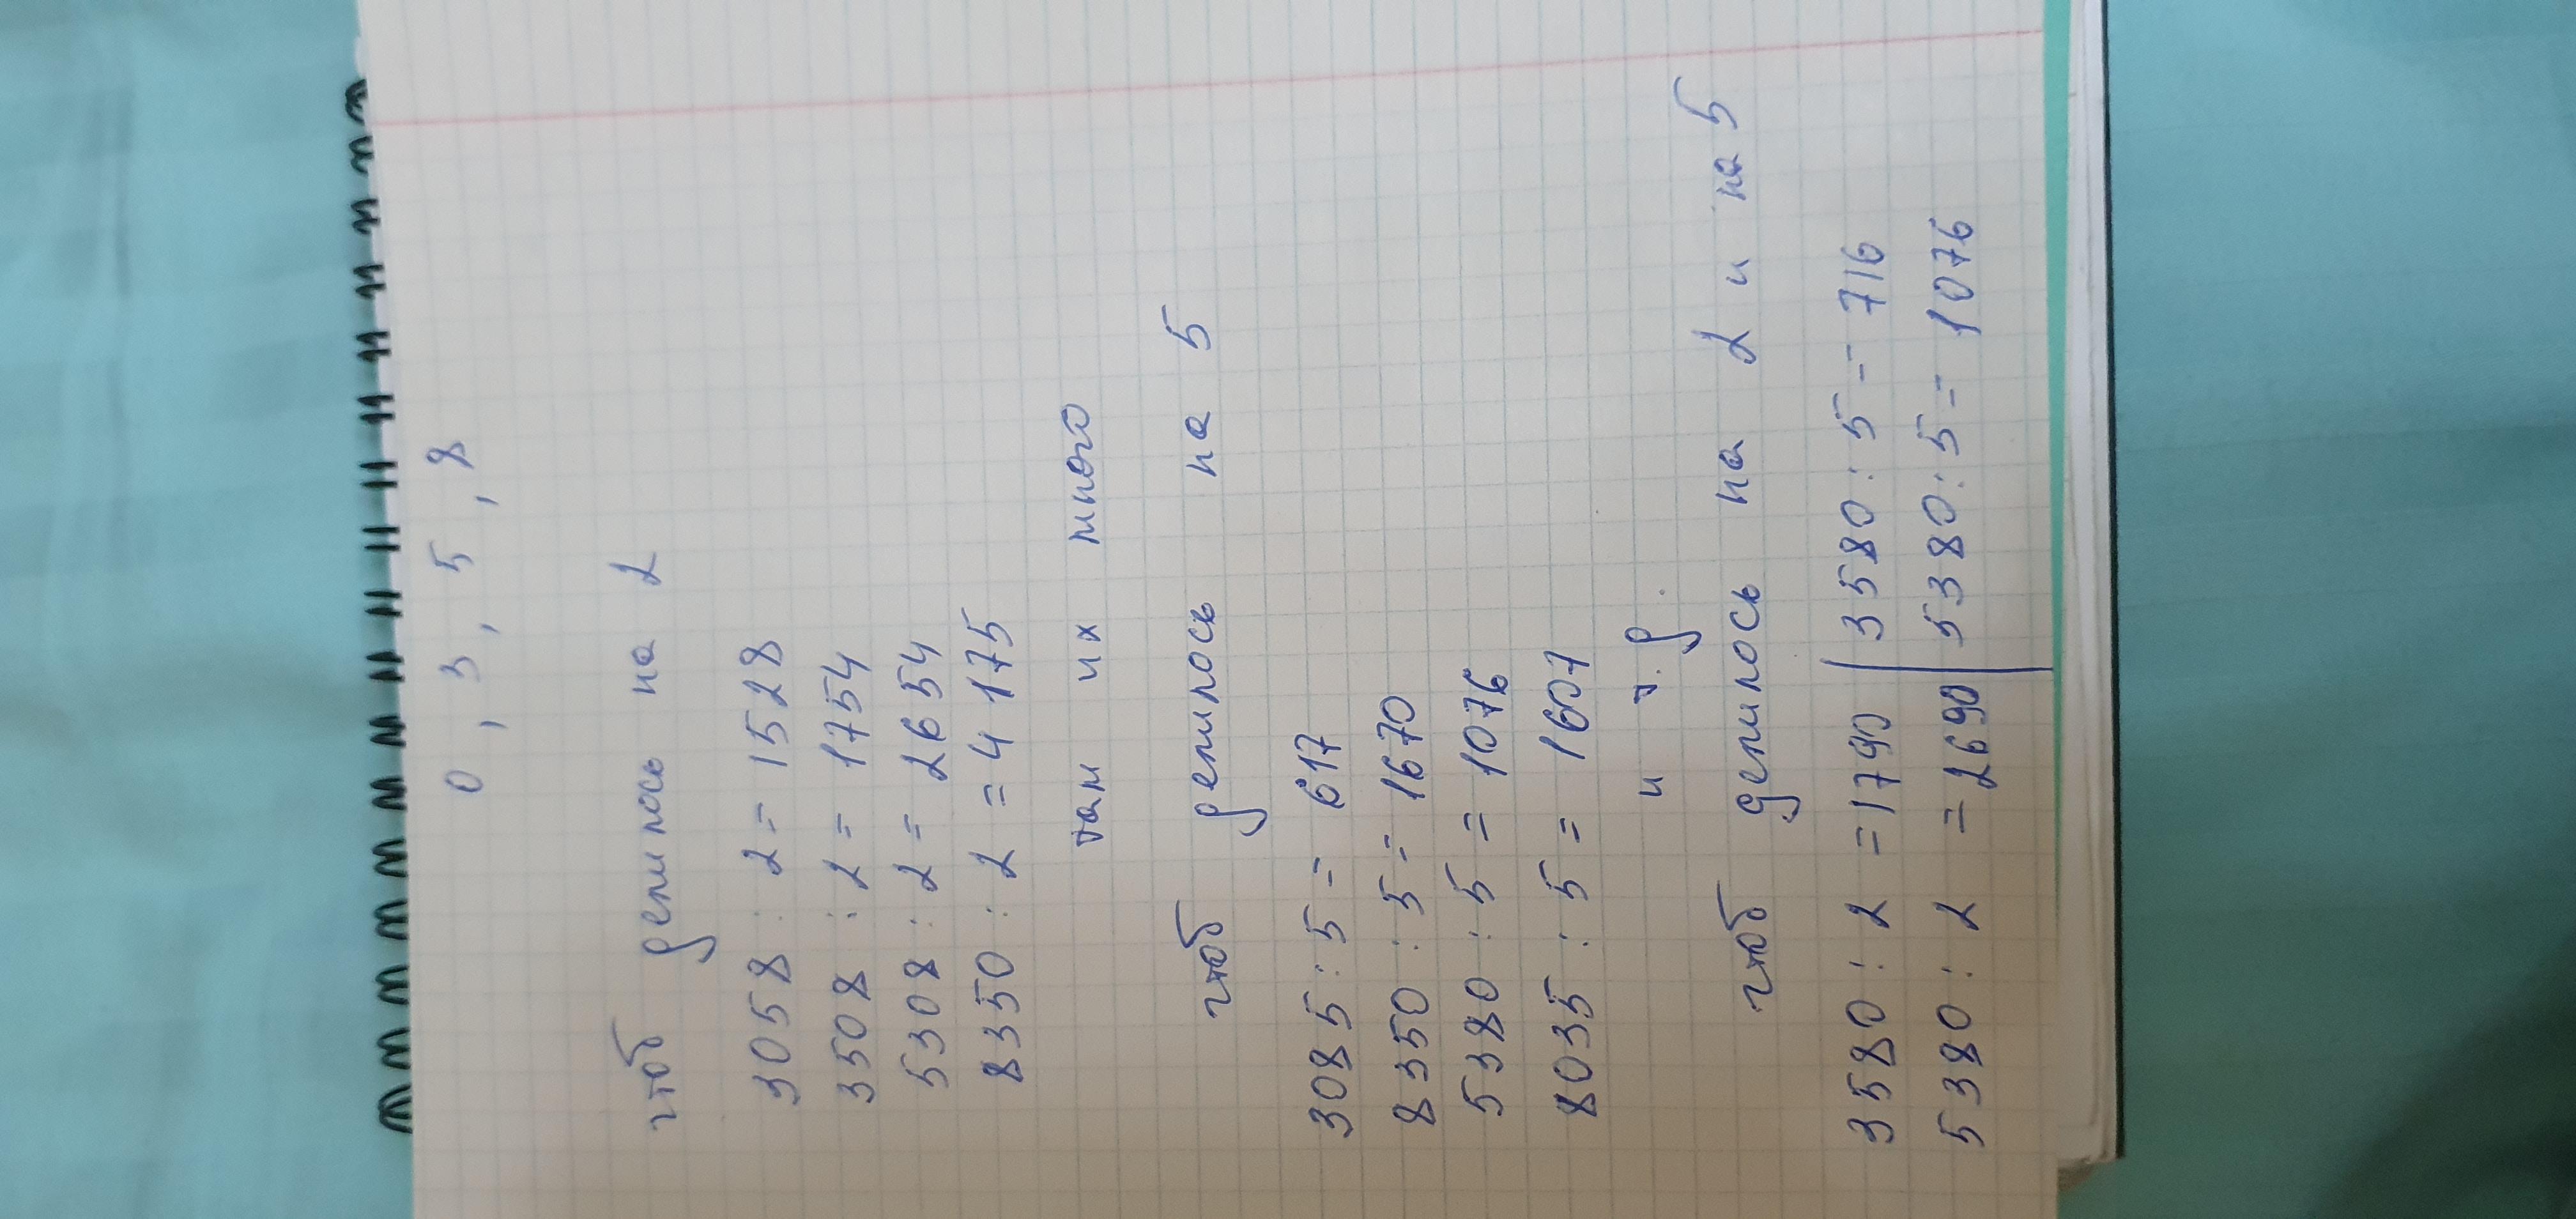 0, 3, 5, 8
чтоб делилось на 2
3058 : 2 = 1528
3508 : 2 = 1754
5308 : 2 = 2654
8350 : 2 = 4 175
там их много
чтоб делилось на 5
3085 : 5 = 617
8350 : 5 = 1670
5380 : 5 = 1076
8035 : 5 = 1607
и т. д.
чтоб делилось на 2 и на 5
3580 : 2 = 1790 | 3580 : 5 = 716
5380 : 2 = 2690 | 5380 : 5 = 1076